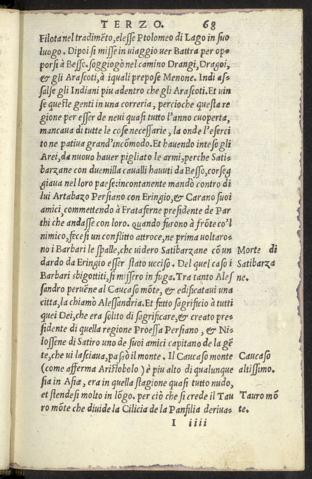 TERZO. 68
Filota nel tradimẽto, elesse Ptolomeo di Lago in suo
luogo. Dipoi si misse in uiaggio uer Battra per op-
porsi à Besso. soggiogò nel camino Drangi, Dragoi,
& gli Arascoti, à i quali prepose Menone. Indi as-
salse gli Indiani piu adentro che gli Arascoti. Et uin
se queste genti in una correria, percioche questa re
gione per esser de neui quasi tutto l'anno cuoperta,
mancaua di tutte le cose necessarie, la onde l'eserci
to ne patiua grand'incõmodo. Et hauendo inteso gli
Arei, da nuouo hauer pigliato le armi, perche Sati-
barzane con duemilla caualli hauuti da Besso, corseg
giaua nel loro paese: incontanente mandò contro di
lui Artabazo Persiano con Eringio, & Carano suoi
amici, commettendo à Frataferne presidente de Par
thi che andasse con loro. quando furono à frõte co'l
nimico, fecesi un conflitto atroce, ne prima uoltaro-
no i Barbari le spalle, che uidero Satibarzane cõ un
dardo da Eringio esser stato ucciso. Del qual caso i
Barbari sbigottiti, si missero in fuga. Tra tanto Ales
sandro peruẽne al Caucaso mõte, & edificataui una
citta, la chiamò Alessandria. Et fatto sagrificio à tutti
quei Dei, che era solito di sagrificare, & creato pre-
sidente di quella regione Proessa Persiano, & Ni-
lossene di Satiro uno de suoi amici capitano de la gẽ
te, che ui lasciaua, passò il monte. Il Caucaso monte
(come afferma Aristobolo) è piu alto di qualunque
sia in Asia, era in quella stagione quasi tutto nudo,
et stendesi molto in lõgo. per ciò che si crede il Tau
ro mõte che diuide la Cilicia de la Panfilia deriuas
I iiii
Morte di
Satibarza
ne.
Caucaso
altissimo.
Tauro mõ
te.